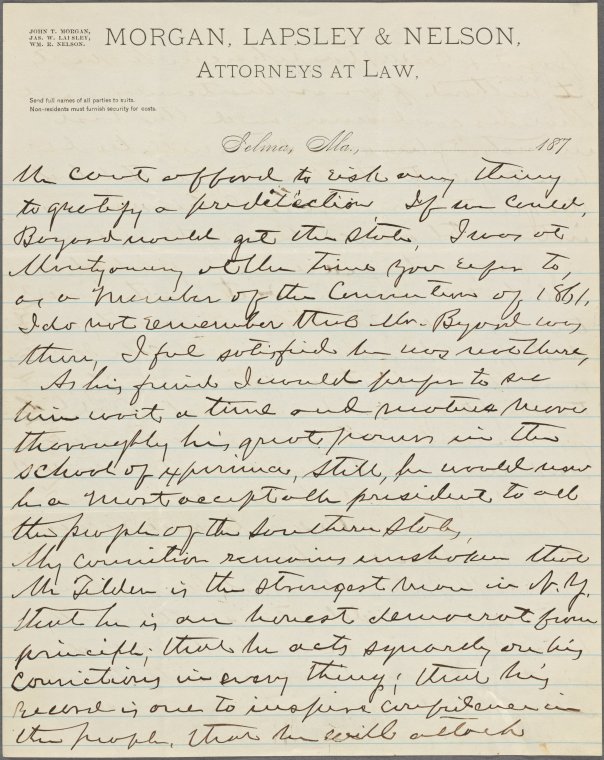 JOHN T. MORGAN,
JAS. W. LAPSLEY,
WM. R. NELSON.
MORGAN, LAPSLEY & NELSON,
ATTORNEYS AT LAW,
Send full names of all parties to suits.
Non-residents must furnish security for costs.
Selma, Ala., 187
We cant afford to risk any thing
to gratify a predilection. If we could,
Bayard would get the State. I was at
Montgomery at the time you refer to,
as a member of the Convention of 1861,
I do not remember that Mr. Bayard was
there, I feel satisfied he was not there,
As his friend I would prefer to see
him wait a time and mature more
thoroughly his great powers in the
school of experience, still, he would now
be a most acceptable president to all
the people of the Southern States,
My conviction remains unshaken that
Mr Tilden is the strongest man in N.Y.
that he is an honest democrat from
principle; that he acts squarely on his
convictions in every thing; that his
record is one to inspire confidence in
the people, that he will attack